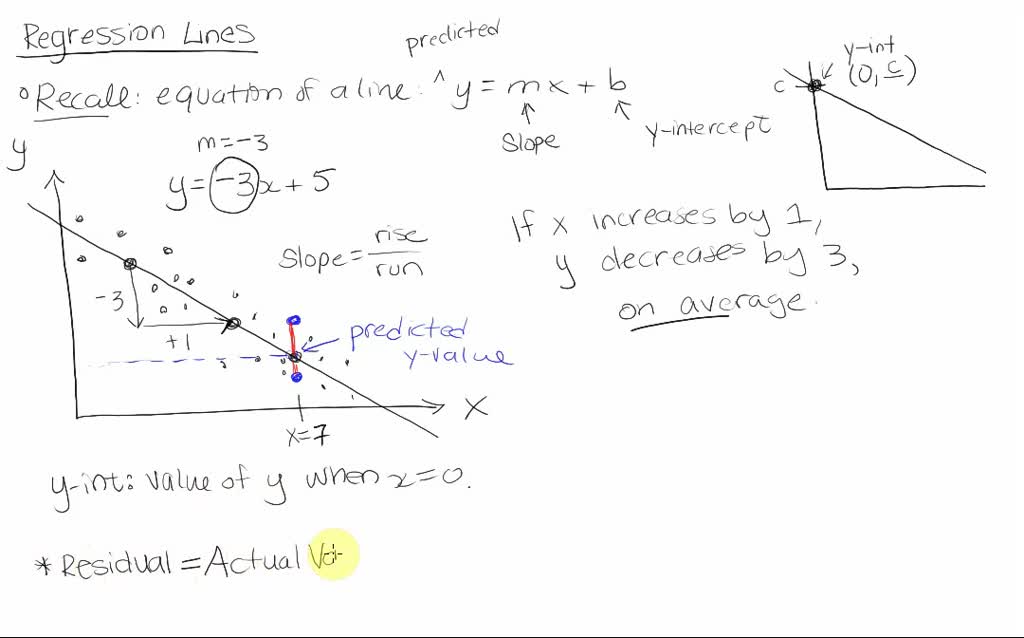 Regression Lines
predicted
Recall: equation of a line: ^ y = mx + b
Slope
y-intercept
y-int
(0, c)
c
y
m = -3
y = -3x + 5
Slope = rise/run
-3
+1
predicted
y-value
x
x=7
If x increases by 1,
y decreases by 3,
on average.
y-int: value of y when x = 0.
* Residual = Actual